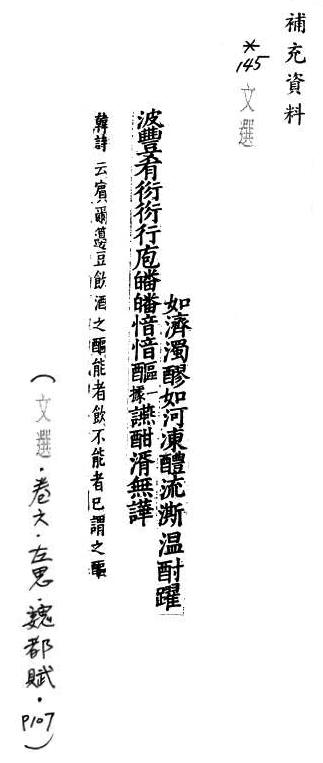 補充資料
*145 文選
如濟濁醪如河凍醴流澌温酎躍
波豐肴衍衍行庖皤皤愔愔醧一據讌酣湑無譁
韓詩云賓爾籩豆飲酒之醧能者飲不能者已謂之醧
(文選·卷六·左思·魏都賦·P107)